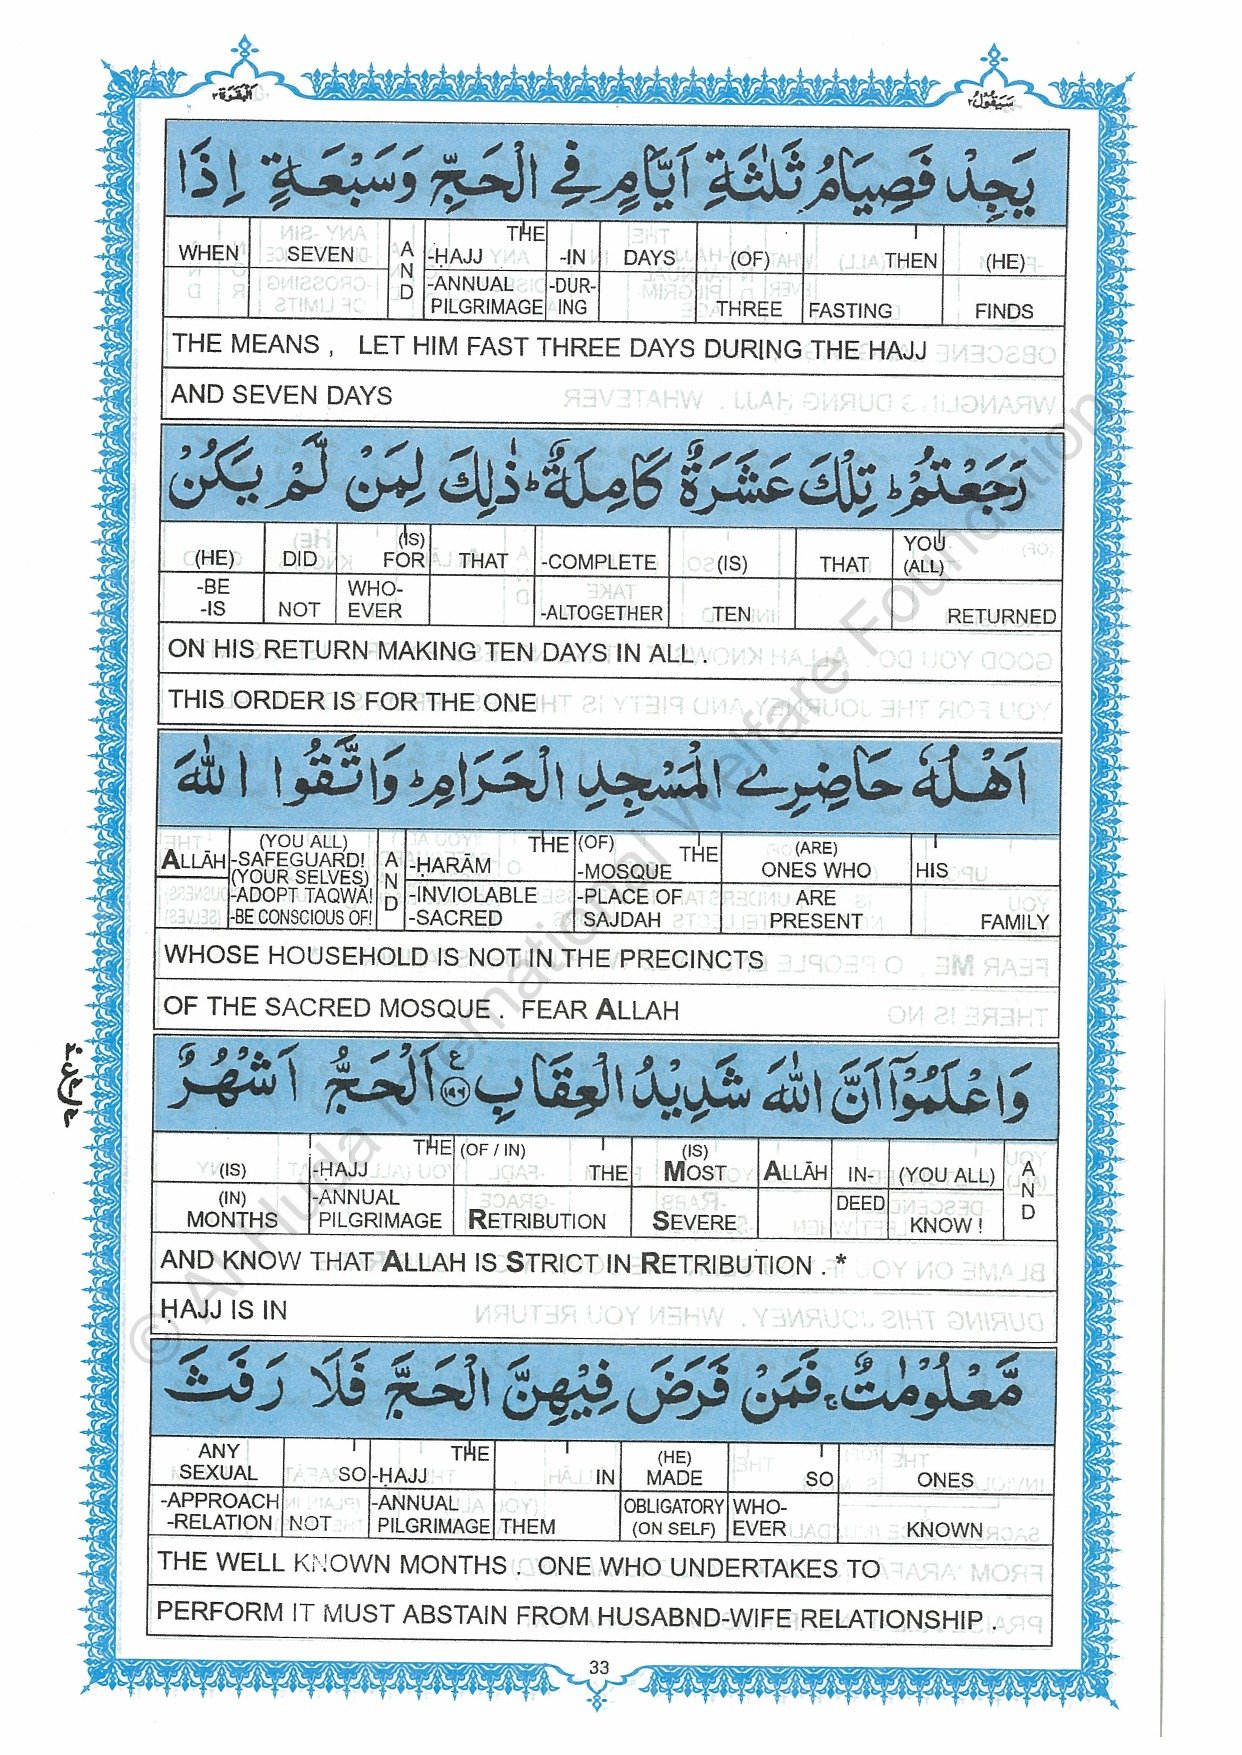 البقرة ٢
سيقول ٢
يَجِدْ فَصِيَامُ ثَلٰثَةِ اَيَّامٍ فِي الْحَجِّ وَسَبْعَةٍ اِذَا
WHEN SEVEN AND THE -HAJJ -IN DAYS (OF) THEN (HE)
-ANNUAL PILGRIMAGE -DUR-ING THREE FASTING FINDS
THE MEANS , LET HIM FAST THREE DAYS DURING THE HAJJ
AND SEVEN DAYS
رَجَعْتُمْ ؕ تِلْكَ عَشَرَةٌ كَامِلَةٌ ؕ ذٰلِكَ لِمَنْ لَّمْ يَكُنْ
(HE) DID (IS) FOR THAT -COMPLETE (IS) THAT YOU (ALL)
-BE -IS NOT WHO-EVER -ALTOGETHER TEN RETURNED
ON HIS RETURN MAKING TEN DAYS IN ALL .
THIS ORDER IS FOR THE ONE
اَهْلُهٗ حَاضِرِي الْمَسْجِدِ الْحَرَامِ ؕ وَاتَّقُوا اللّٰهَ
ALLĀH (YOU ALL) -SAFEGUARD! (YOUR SELVES) AND THE -ḤARĀM (OF) -MOSQUE THE (ARE) ONES WHO HIS
-ADOPT TAQWA! -BE CONSCIOUS OF! -INVIOLABLE -SACRED -PLACE OF SAJDAH ARE PRESENT FAMILY
WHOSE HOUSEHOLD IS NOT IN THE PRECINCTS
OF THE SACRED MOSQUE . FEAR ALLAH
وَاعْلَمُوْٓا اَنَّ اللّٰهَ شَدِيْدُ الْعِقَابِ ع ١٩٦ اَلْحَجُّ اَشْهُرٌ
(IS) THE -ḤAJJ (OF / IN) THE (IS) MOST ALLĀH IN- (YOU ALL) AND
(IN) MONTHS -ANNUAL PILGRIMAGE RETRIBUTION SEVERE DEED KNOW !
AND KNOW THAT ALLAH IS STRICT IN RETRIBUTION . *
ḤAJJ IS IN
مَّعْلُوْمٰتٌ ۚ فَمَنْ فَرَضَ فِيْهِنَّ الْحَجَّ فَلَا رَفَثَ
ANY SEXUAL SO THE -ḤAJJ IN (HE) MADE SO ONES
-APPROACH -RELATION NOT -ANNUAL PILGRIMAGE THEM OBLIGATORY (ON SELF) WHO-EVER KNOWN
THE WELL KNOWN MONTHS . ONE WHO UNDERTAKES TO
PERFORM IT MUST ABSTAIN FROM HUSABND-WIFE RELATIONSHIP .
33
© Al Huda International Welfare Foundation